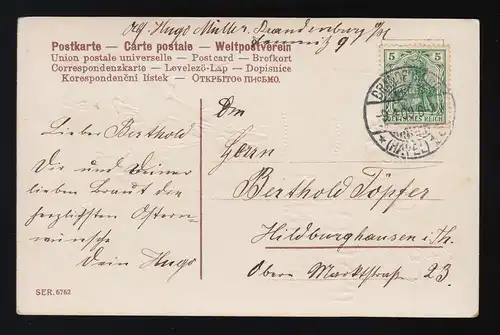 Abs. Hugo Müller, Brandenburg a/H
9
Postkarte – Carte postale – Weltpostverein
Union postale universelle – Postcard – Brefkort
Correspondenzkarte – Levelező-Lap – Dopisnice
Korespondenční listek – ОТКРЫТОЕ ПИСЬМО.
5 5
DEUTSCHES REICH
(HAVEL)
Lieber Berthold
Dir und Deiner
lieben Braut den
herzlichsten Oster-
wünsche
Dein Hugo
Herrn
Berthold Töpfer
Hildburghausen i. Th.
Obere Marktstraße 23.
SER. 6762